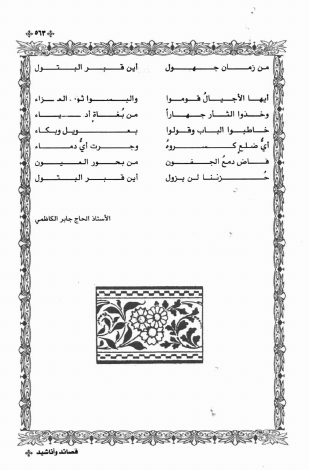 ٥٦٣
من زمان جهول أين قبر البتول
أيها الأجيالُ قوموا والبسوا ثوب العزاء
وخذوا الثار جهاراً من بُغاةٍ
خاطبوا الباب وقولوا بعويل وبكاء
أيُّ ضلعٍ كسروهُ وجرت أيُّ دماء
فاض دمعُ الجفون من بحور العيون
حُزننا لن يزول أين قبر البتول
الأستاذ الحاج جابر الكاظمي
قصائد وأناشيد